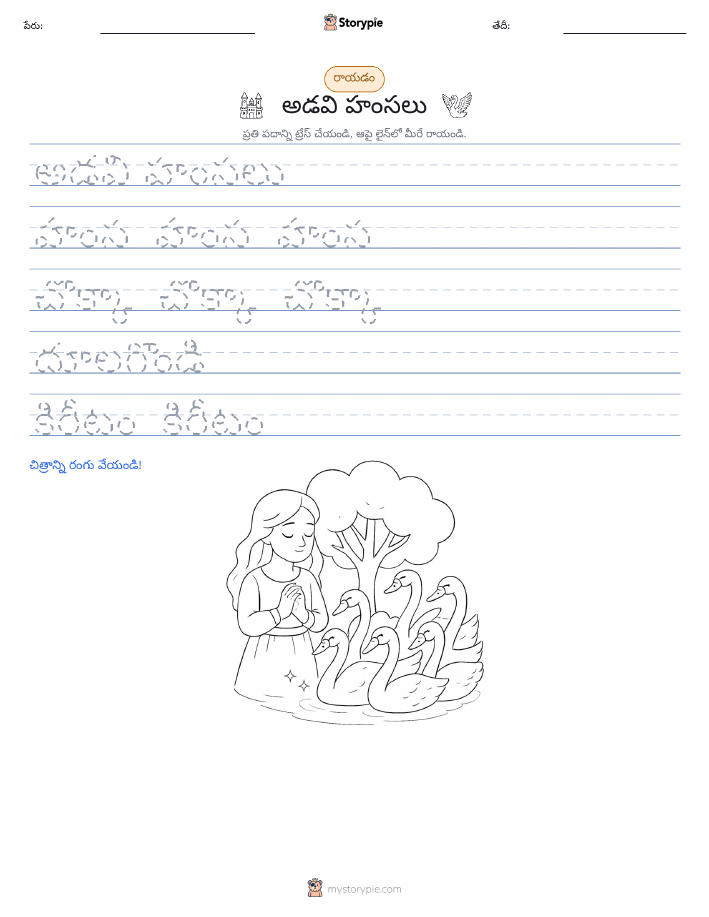 పేరు: Storypie తేదీ:
రాయడం
అడవి హంసలు
ప్రతి పదాన్ని ట్రేస్ చేయండి, ఆపై లైన్‌లో మీరే రాయండి.
అడవి హంసలు
హంస హంస హంస
చొక్కా చొక్కా చొక్కా
దూలగొండి
కిరీటం కిరీటం
చిత్రాన్ని రంగు వేయండి!
mystorypie.com